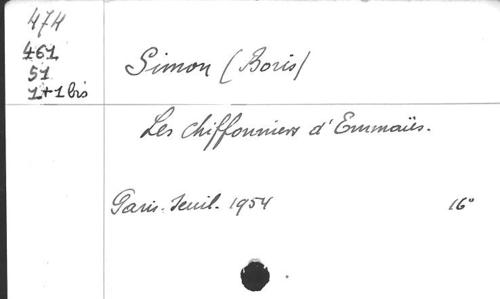 474
461
51
1+1 bis
Simon (Boris)
Les chiffonniers d'Emmaüs.
Paris. Seuil. 1954 16°